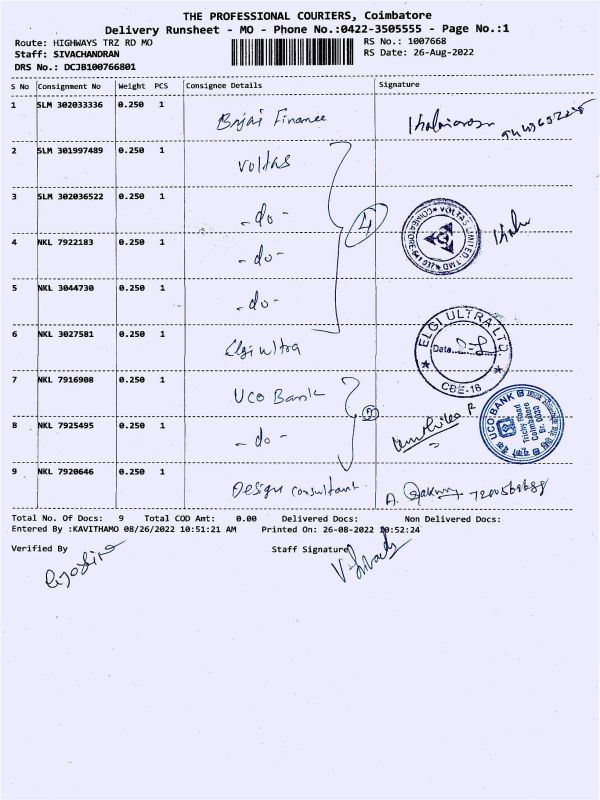 THE PROFESSIONAL COURIERS, Coimbatore
Delivery Runsheet - MO - Phone No.:0422-3505555 - Page No.:1
Route: HIGHWAYS TRZ RD MO
RS No.: 1007668
Staff: SIVACHANDRAN
RS Date: 26-Aug-2022
DRS No.: DCJB100766801
S No Consignment No Weight PCS Consignee Details Signature
1 SLM 302033336 0.250 1 Bajaj Finance
2 SLM 301997489 0.250 1 Voltas
3 SLM 302036522 0.250 1 - do -
4 NKL 7922183 0.250 1 - do -
4
VOLTAS LIMITED
5 NKL 3044730 0.250 1 - do -
6 NKL 3027581 0.250 1 Elgi ultra
ELGI ULTRA LTD.
Date
CBE-18
7 NKL 7916908 0.250 1 UCO Bank
2
UCO BANK
Trichy Road
Coimbatore
8 NKL 7925495 0.250 1 - do -
9 NKL 7920646 0.250 1 Design consultant
Total No. Of Docs: 9 Total COD Amt: 0.00 Delivered Docs: Non Delivered Docs:
Entered By :KAVITHAMO 08/26/2022 10:51:21 AM Printed On: 26-08-2022 10:52:24
Verified By Staff Signature